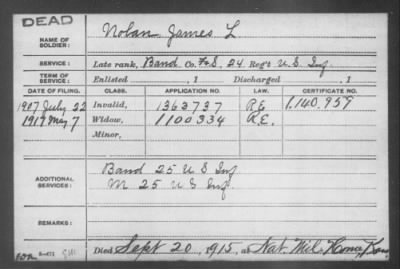 DEAD
NAME OF SOLDIER: Nolan James L
SERVICE: Late rank, Band Co. F&S, 24 Reg't U.S. Inf
TERM OF SERVICE: Enlisted , 1 Discharged , 1
DATE OF FILING. CLASS. APPLICATION NO. LAW. CERTIFICATE NO.
1907 July 22 Invalid, 1363737 R.E. 1.140.959
1917 May 7 Widow, 1100334 R.E.
Minor,
ADDITIONAL SERVICES: Band 25 U S Inf
M 25 U S Inf
REMARKS:
Died Sept 20, 1915, at Nat. Mil. Home, Kans